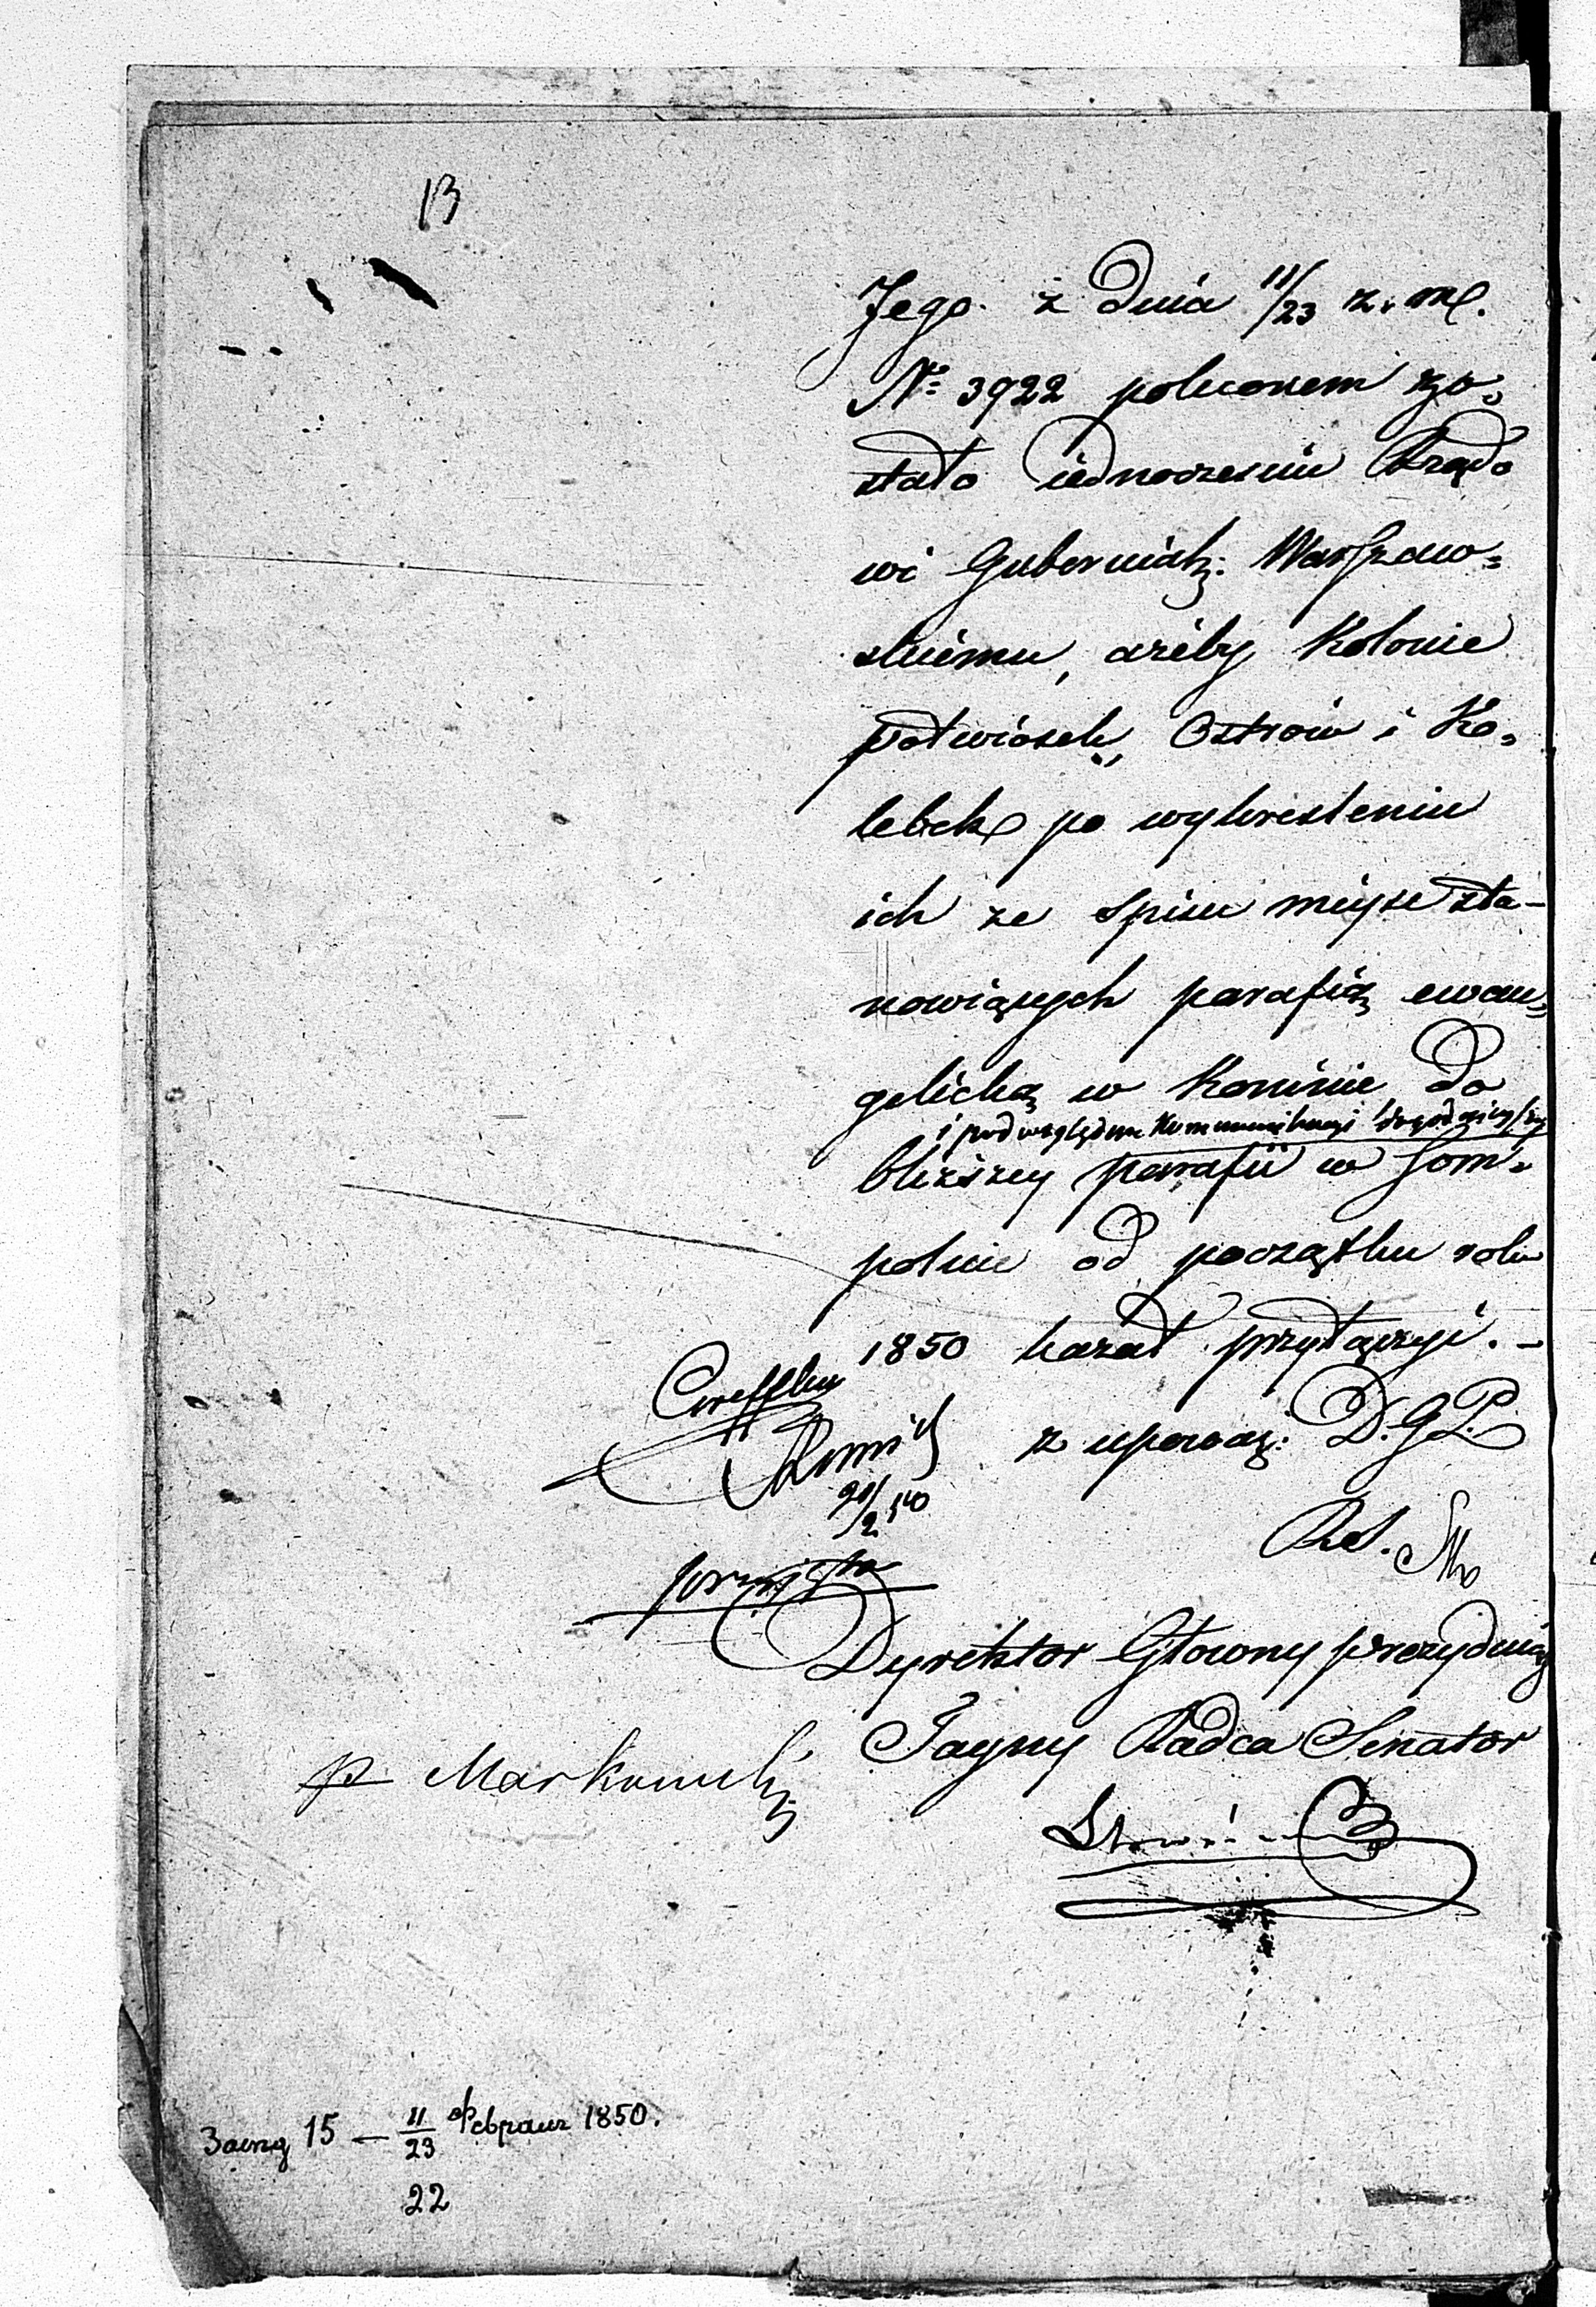 13
Jego z dnia 11/23 z. m.
№ 3922 poleconem zo=
stało iednocześnie Rządo
wi Gubernialn: Warszaw=
skiemu, ażeby Kolonie
Półwiosek, Ostrów i Ko=
lebek po wykreśleniu
ich ze spisu mieysc sta-
nowiących parafią ewan=
gelicką w Koninie do
i pod względem Kommunikacyi
bliższey parafii w Som=
polnie od początku roku
1850 kazał przyłączyć. -
z upoważ: D.G.P.
21/2 50
Dyrektor Główny prezydując
Tayny Radca Senator
15 — 11/23 Февраля 1850.
22